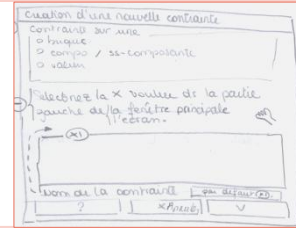 création d'une nouvelle contrainte
contrainte sur une
o brique
o compo / ss-composante
o valeur
Sélectionez la x voulue de la partie
gauche de la fenêtre principale
l'écran.
x1
Nom de la contrainte par défaut
? x V